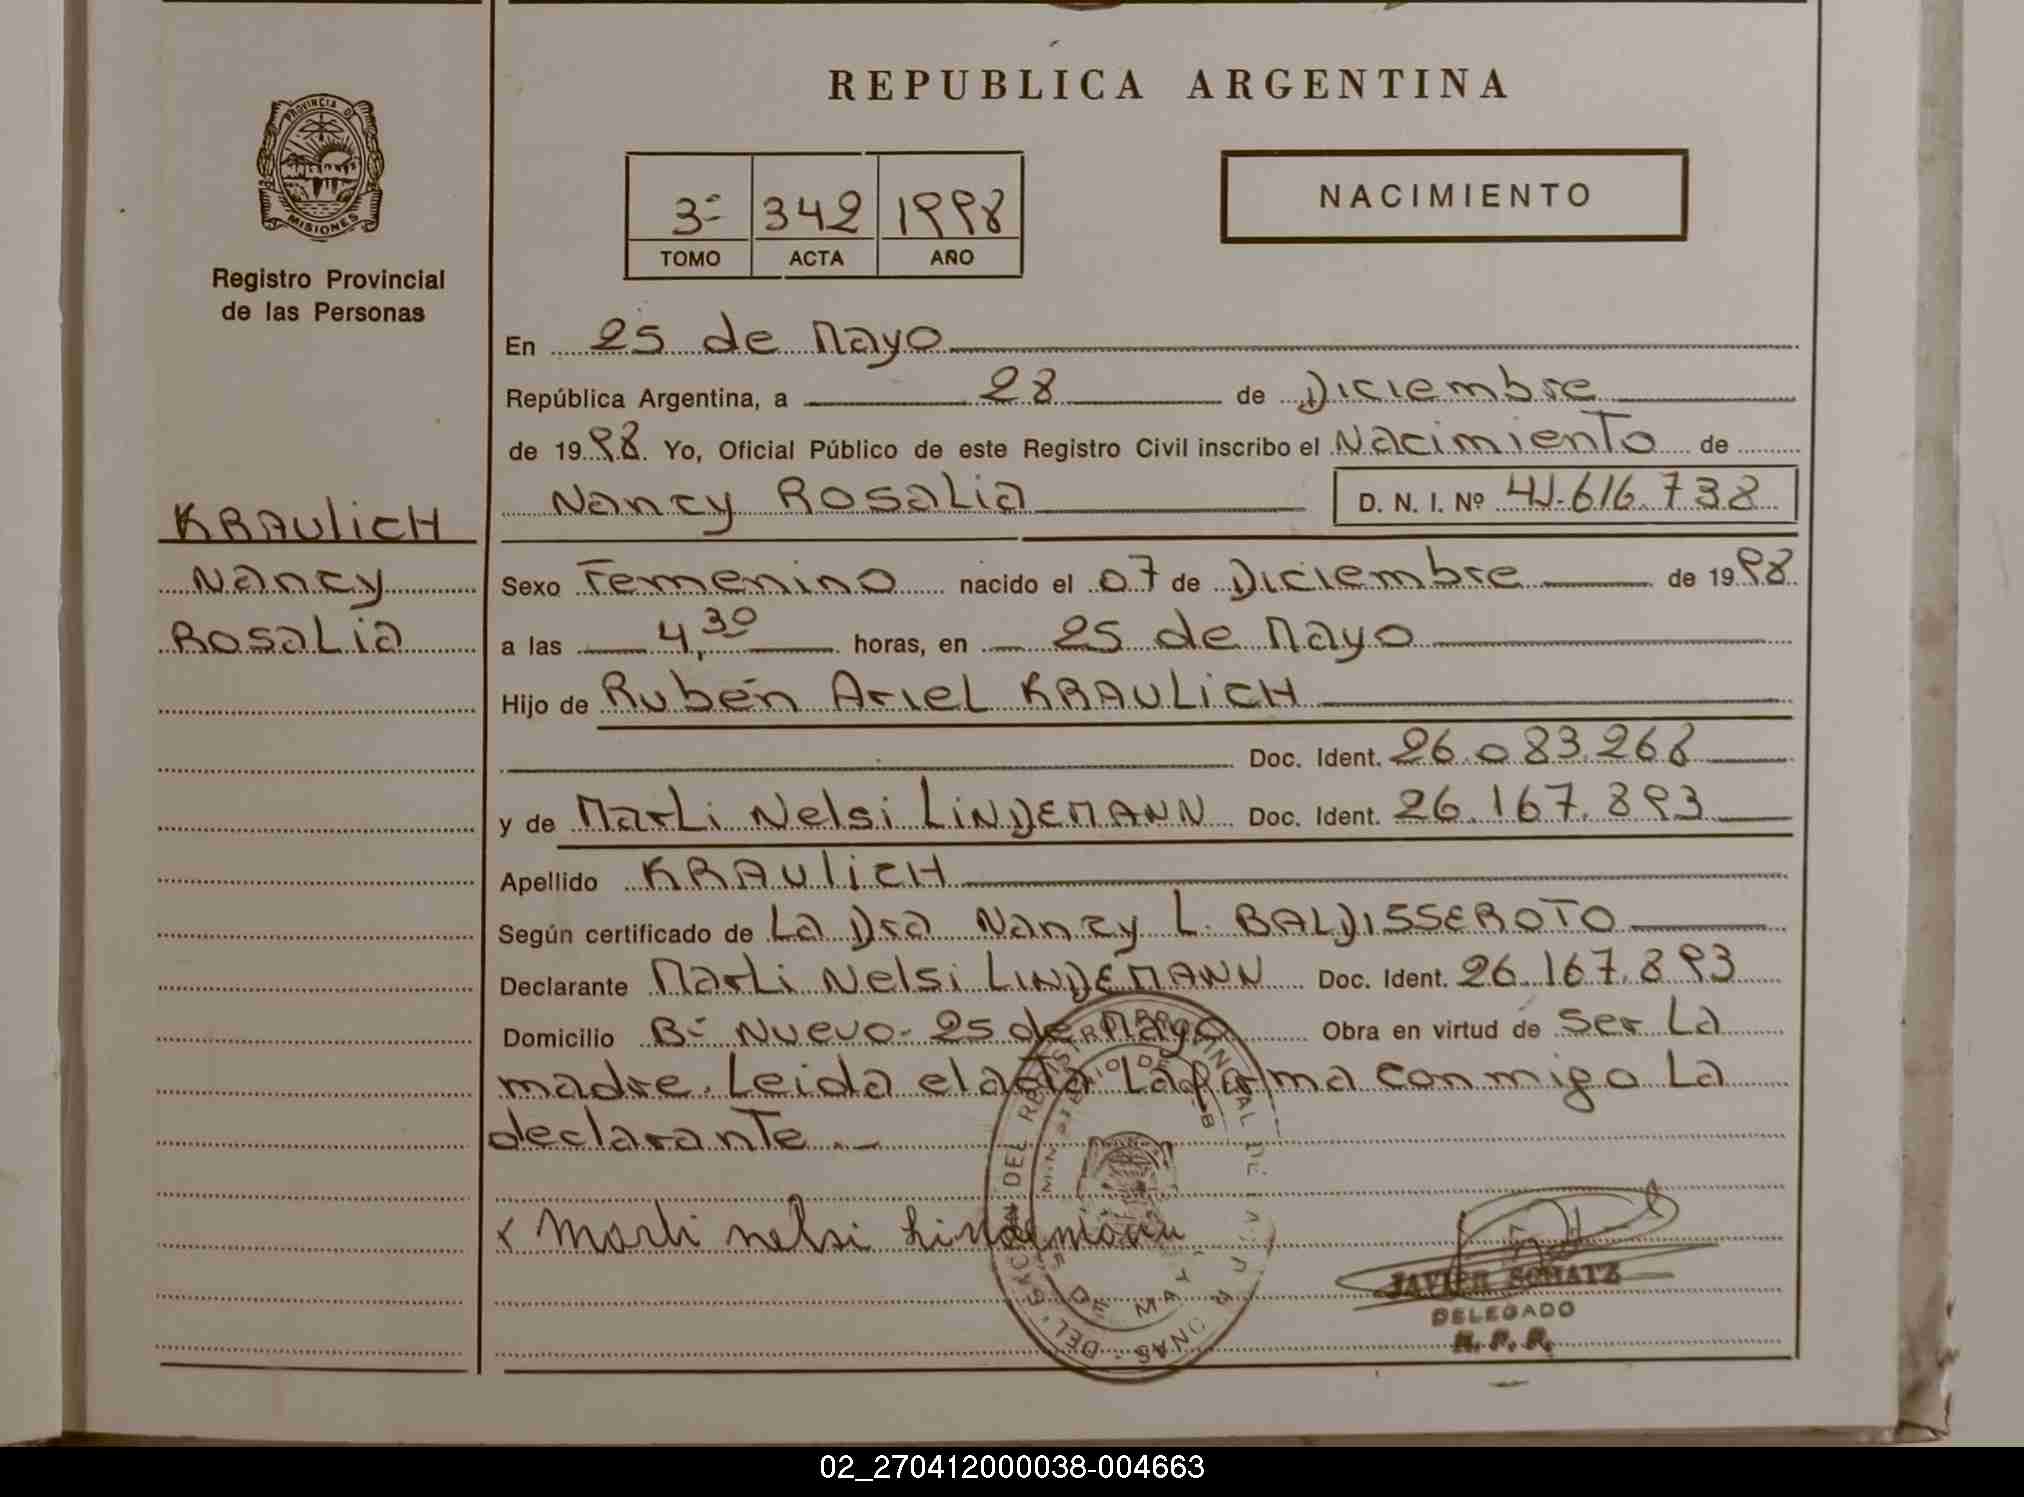 REPUBLICA ARGENTINA
PROVINCIA DE
MISIONES
Registro Provincial
de las Personas
3º 342 1998
TOMO ACTA AÑO
NACIMIENTO
En 25 de Mayo
República Argentina, a 28 de Diciembre
de 1998. Yo, Oficial Público de este Registro Civil inscribo el Nacimiento de
Nancy Rosalia D. N. I. Nº 41.616.738
KRAULICH
Nancy
Rosalia
Sexo Femenino nacido el 07 de Diciembre de 1998
a las 4,30 horas, en 25 de Mayo
Hijo de Rubén Ariel KRAULICH
Doc. Ident. 26.083.268
y de Marli Nelsi LINDEMANN Doc. Ident. 26.167.893
Apellido KRAULICH
Según certificado de La Dra Nancy L. BALDISSEROTO
Declarante Marli Nelsi LINDEMANN Doc. Ident. 26.167.893
Domicilio Bº Nuevo- 25 de Mayo Obra en virtud de Ser La
madre. Leida el acta La firma conmigo La
declarante.-
x Marli nelsi Lindemann
JAVIER SCHATZ
DELEGADO
R. P. P.
02_270412000038-004663